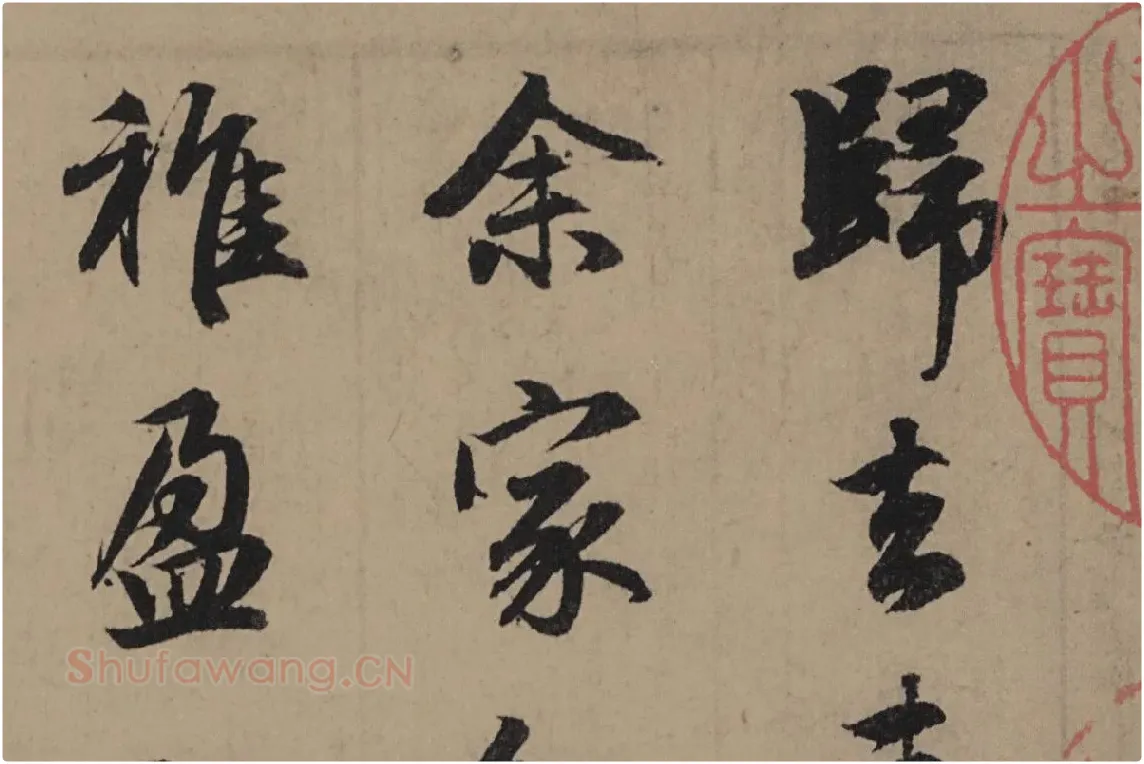 之寶
歸去
余家
稚盈
Shufawang.CN